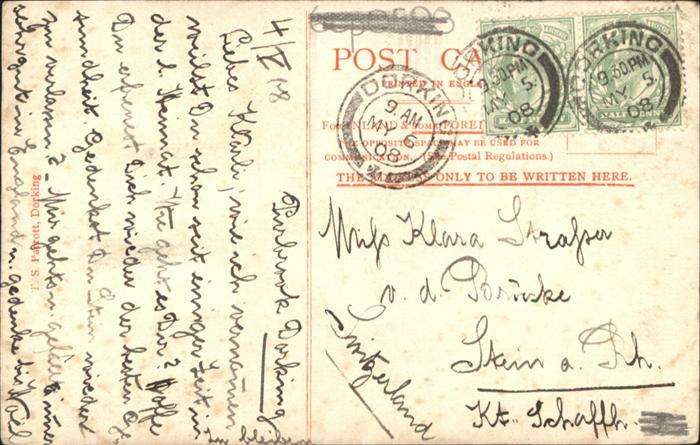 POST CA
PRINTED IN ENGL
FOR INLAND & SOME FOREI
THE OPPOSITE SPACE MAY BE USED FOR
COMMUNICATION. (See Postal Regulations.)
THE ONLY TO BE WRITTEN HERE.
DORKING
9.50PM
MY 5
08
DORKING
9.50PM
MY 5
08
HALFPENNY
DORKING
9 AM
MY 6
08
Miss Klara Strasser
v. d. Brücke
Stein a. Rh.
Kt. Schaffh.
Switzerland
Dorking
4/V 08
Liebes Klärli, wie ich vernommen
weilst Du schon seit einiger Zeit in
der l. Heimat. Wie geht es Dir? Hoffe
Du erfreuest Dich wieder der besten Ge-
sundheit. Gedenkst Du Stein wieder
zu verlassen? Mir geht es immer
sehr gut in England u. gedenke bis
zu bleiben
F. S. Parrott, Dorking